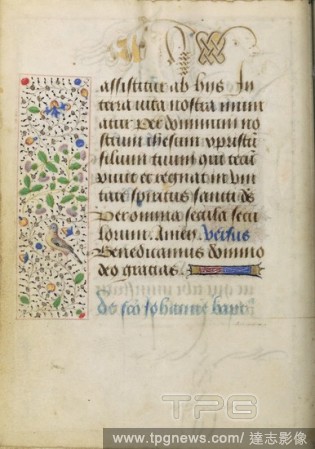 assistitur ab hijs In
terra vita nostra muni
atur Per dominum no
strum ihesum xpristum
filium tuum qui tecum
vivit et regnat in uni
tate spiritus sancti ds
Per omnia secula secu
lorum. Amen. Versus
Benedicamus domino
deo gratias
de sco iohanne bapt
TPG
www.tpgnews.com/ 達志影像